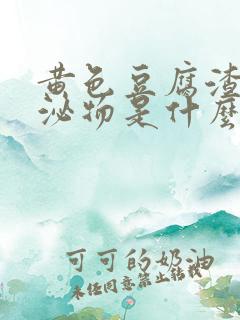 黄色豆腐渣
泌物是什么
可可的奶油
未经同意禁止转载